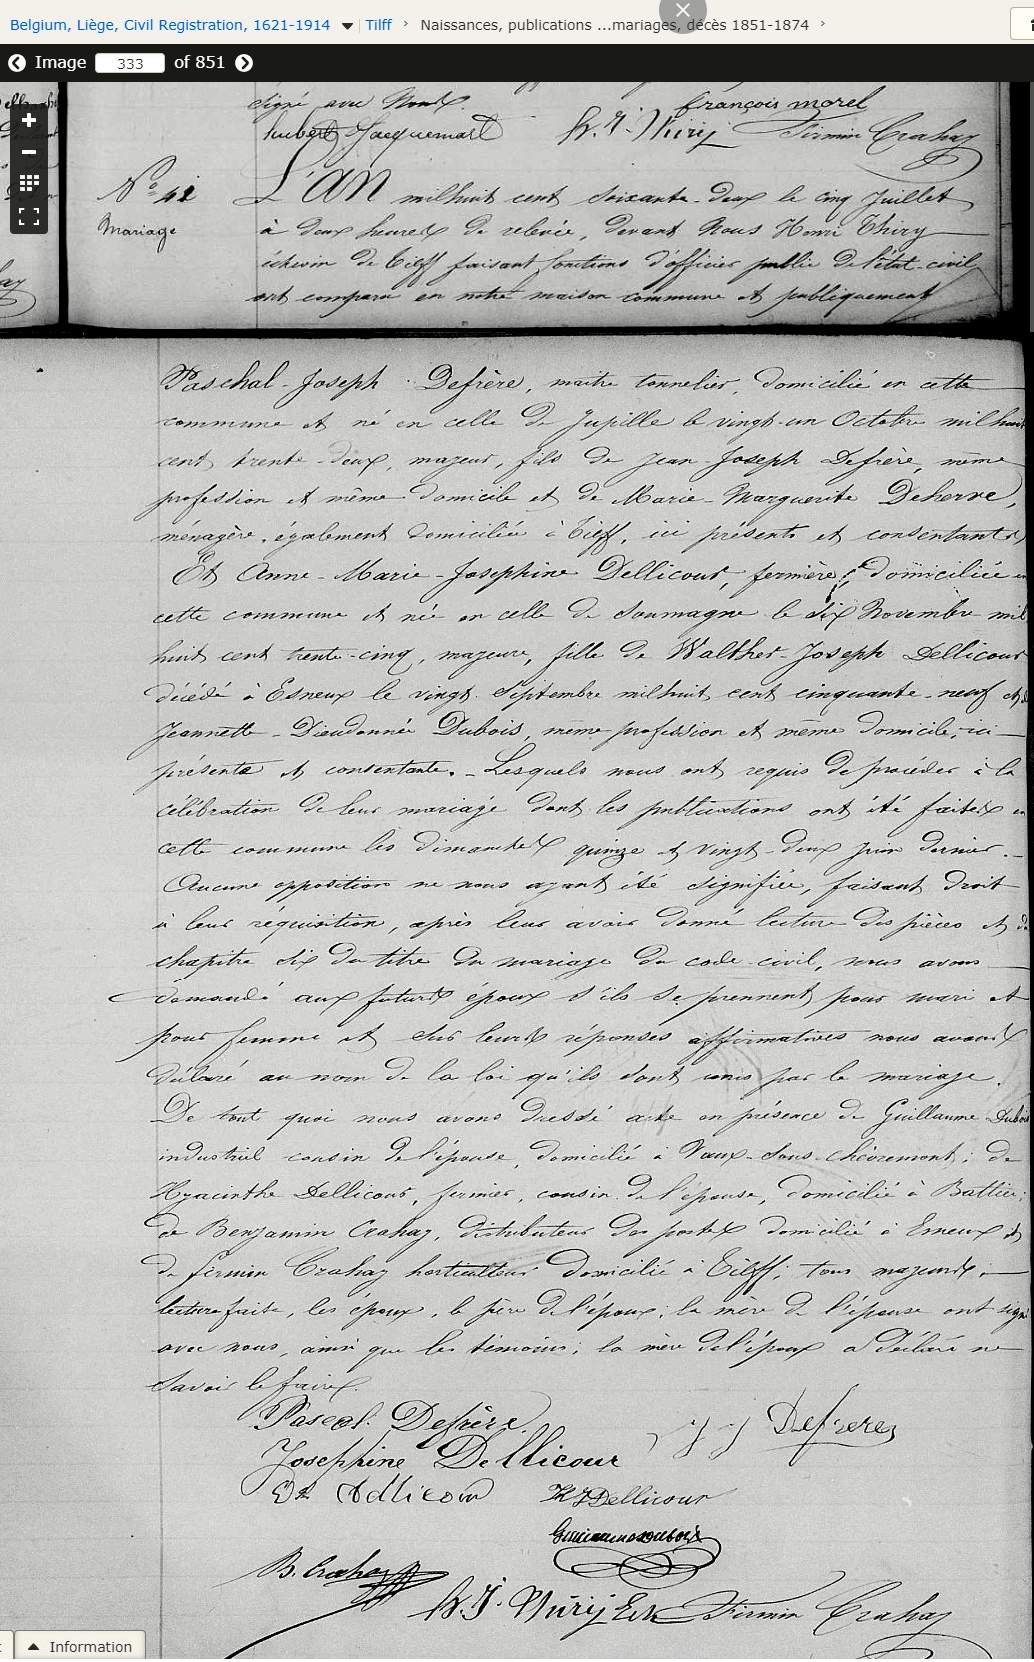 Belgium, Liège, Civil Registration, 1621-1914 Tilff › Naissances, publications ...mariages, décès 1851-1874 ›
Image 333 of 851
signé avec Nous.
françois morel
hubert Jacquemart H. J. Thiry Firmin Crahay
N° 42
Mariage
L'AN milhuit cent soixante-deux le cinq Juillet
à deux heures de relevée, devant Nous Henri Thiry
échevin de Tilff faisant fonctions d'officier public de l'état-civil
ont comparu en notre maison commune et publiquement
Paschal-Joseph Defrère, maitre tonnelier, domicilié en cette
commune et né en celle de Jupille le vingt-un Octobre milhuit
cent trente-deux, majeur, fils de Jean-Joseph Defrère, même
profession et même domicile et de Marie-Marguerite Deherve,
ménagère, également domiciliée à Tilff, ici présents et consentants
Et Anne-Marie-Josephine Dellicour, fermière, domiciliée en
cette commune et née en celle de Soumagne le six Novembre mil
huit cent trente-cinq, majeure, fille de Walther-Joseph Dellicour
décédé à Esneux le vingt Septembre milhuit cent cinquante-neuf et de
Jeannette-Dieudonnée Dubois, même profession et même domicile, ici
présente et consentante. - Lesquels nous ont requis de procéder à la
célébration de leur mariage dont les publications ont été faites en
cette commune les dimanches quinze et vingt-deux juin dernier.
Aucune opposition ne nous ayant été signifiée, faisant droit
à leur réquisition, après leur avoir donné lecture des pièces et du
chapitre six du titre du mariage du code civil, nous avons
demandé aux futurs époux s'ils se prennent pour mari et
pour femme et sur leurs réponses affirmatives nous avons
déclaré au nom de la loi qu'ils sont unis par le mariage.
De tout quoi nous avons dressé acte en présence de Guillaume Dubois
industriel cousin de l'épouse, domicilié à Vaux-sous-chèvremont; de
Hyacinthe Dellicour, fermier, cousin de l'épouse, domicilié à Battice;
de Benjamin Crahay, distributeur des postes domicilié à Esneux et
de firmin Crahay horticulteur domicilié à Tilff; tous majeurs;
lecture faite, les époux, le père de l'époux; la mère de l'épouse ont signé
avec nous, ainsi que les témoins; la mère de l'époux a déclaré ne
savoir le faire.
Pascal. Defrère J J Defrere
Josephine Dellicour
Dellicour
Guillaume Dubois
B. Crahay
H. J. Thiry Ech Firmin Crahay
Information